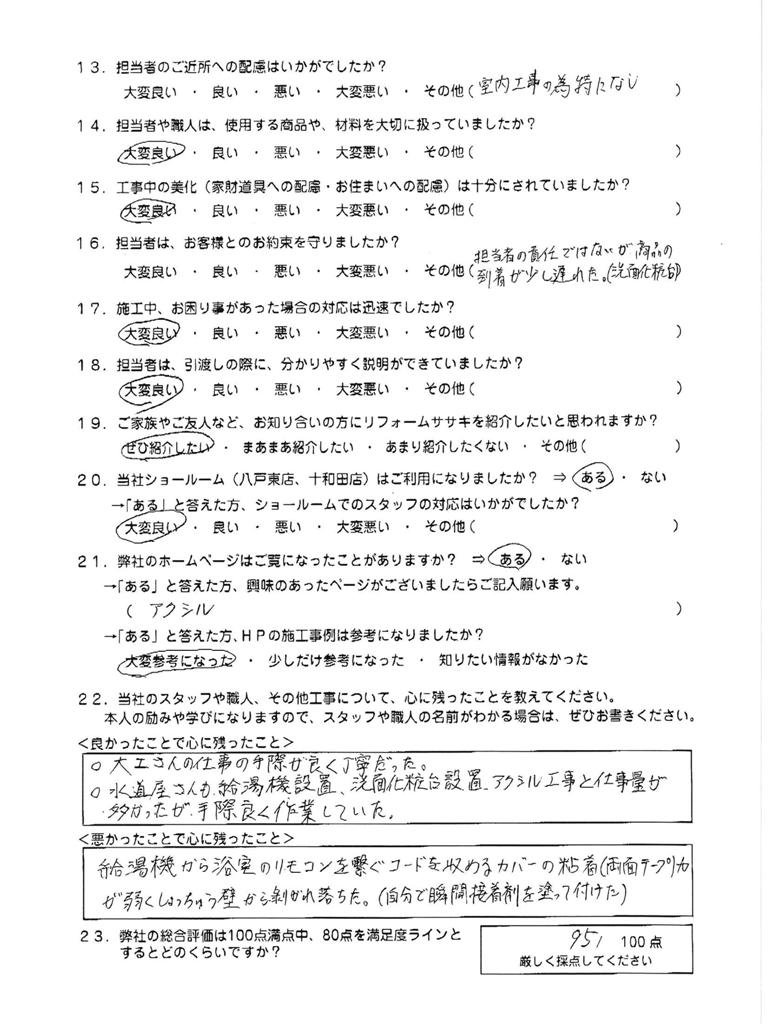 13．担当者のご近所への配慮はいかがでしたか？
大変良い ・ 良い ・ 悪い ・ 大変悪い ・ その他( 室内工事の為特になし )
14．担当者や職人は、使用する商品や、材料を大切に扱っていましたか？
大変良い ・ 良い ・ 悪い ・ 大変悪い ・ その他( )
15．工事中の美化（家財道具への配慮・お住まいへの配慮）は十分にされていましたか？
大変良い ・ 良い ・ 悪い ・ 大変悪い ・ その他( )
16．担当者は、お客様とのお約束を守りましたか？
担当者の責任ではないが商品の
大変良い ・ 良い ・ 悪い ・ 大変悪い ・ その他( 到着が少し遅れた。(洗面化粧台) )
17．施工中、お困り事があった場合の対応は迅速でしたか？
大変良い ・ 良い ・ 悪い ・ 大変悪い ・ その他( )
18．担当者は、引渡しの際に、分かりやすく説明ができていましたか？
大変良い ・ 良い ・ 悪い ・ 大変悪い ・ その他( )
19．ご家族やご友人など、お知り合いの方にリフォームササキを紹介したいと思われますか？
ぜひ紹介したい ・ まあまあ紹介したい ・ あまり紹介したくない ・ その他( )
20．当社ショールーム（八戸東店、十和田店）はご利用になりましたか？ ⇒ ある ・ ない
→「ある」と答えた方、ショールームでのスタッフの対応はいかがでしたか？
大変良い ・ 良い ・ 悪い ・ 大変悪い ・ その他( )
21．弊社のホームページはご覧になったことがありますか？ ⇒ ある ・ ない
→「ある」と答えた方、興味のあったページがございましたらご記入願います。
( アクシル )
→「ある」と答えた方、HPの施工事例は参考になりましたか？
大変参考になった ・ 少しだけ参考になった ・ 知りたい情報がなかった
22．当社のスタッフや職人、その他工事について、心に残ったことを教えてください。
本人の励みや学びになりますので、スタッフや職人の名前がわかる場合は、ぜひお書きください。
<良かったことで心に残ったこと>
○ 大工さんの仕事の手際が良く丁寧だった。
○ 水道屋さんが給湯機設置、洗面化粧台設置、アクシル工事と仕事量が
多かったが、手際良く作業していた。
<悪かったことで心に残ったこと>
給湯機から浴室のリモコンを繋ぐコードを収めるカバーの粘着(両面テープ)力
が弱くしょっちゅう壁から剥がれ落ちた。(自分で瞬間接着剤を塗って付けた)
23．弊社の総合評価は100点満点中、80点を満足度ラインと
するとどのくらいですか？
95/ 100点
厳しく採点してください